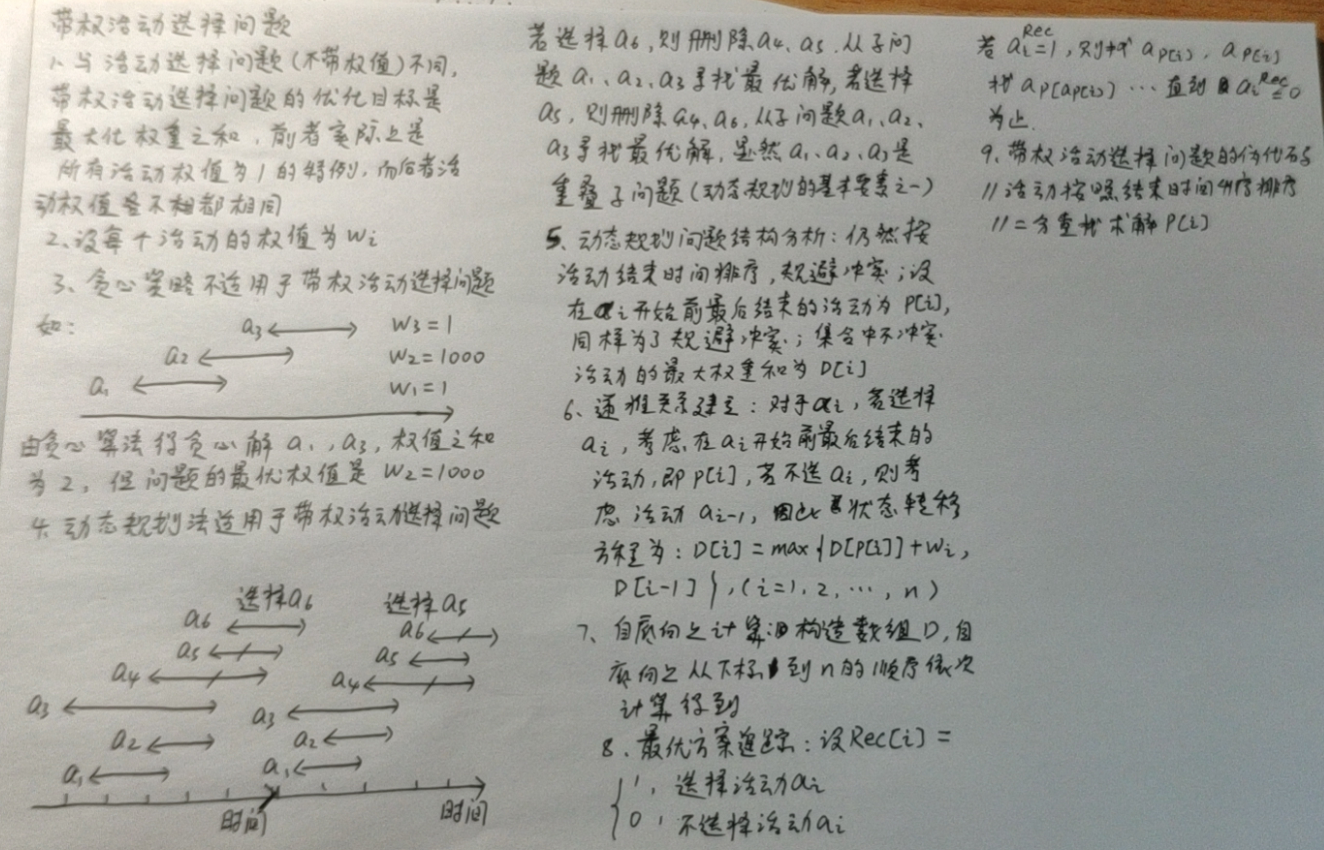 带权活动选择问题
1、与活动选择问题(不带权值)不同,
带权活动选择问题的优化目标是
最大化权重之和,前者实际上是
所有活动权值为1的特例,而后者活
动权值并不都相同
2、设每个活动的权值为Wi
3、贪心策略不适用于带权活动选择问题
如:
a3 W3=1
a2 W2=1000
a1 W1=1
由贪心算法得贪心解a1,a3,权值之和
为2,但问题的最优权值是W2=1000
4、动态规划法适用于带权活动选择问题
选择a6
a6
a5
a4
a3
a2
a1
时间
选择a5
a6
a5
a4
a3
a2
a1
时间
若选择a6,则删除a4、a5,从子问
题a1、a2、a3寻找最优解,若选择
a5,则删除a4、a6,从子问题a1、a2、
a3寻找最优解,显然a1、a2、a3是
重叠子问题(动态规划的基本要素之一)
5、动态规划问题结构分析:仍然按
活动结束时间排序,规避冲突;设
在ai开始前最后结束的活动为P[i],
同样为了规避冲突;集合中不冲突
活动的最大权重和为D[i]
6、递推关系建立:对于ai,若选择
ai,考虑在ai开始前最后结束的
活动,即P[i],若不选ai,则考
虑活动ai-1,因此状态转移
方程为:D[i]=max{D[P[i]]+Wi,
D[i-1]},(i=1,2,…,n)
7、自底向上计算:构造数组D,自
底向上从下标1到n的顺序依次
计算得到
8、最优方案追踪:设Rec[i]=
{1,选择活动ai
0,不选择活动ai
若aiRec=1,则找aP[i],aP[i]
找aP[aP[i]]…直到aiRec=0
为止.
9、带权活动选择问题的伪代码
//活动按照结束时间升序排序
//二分查找求解P[i]